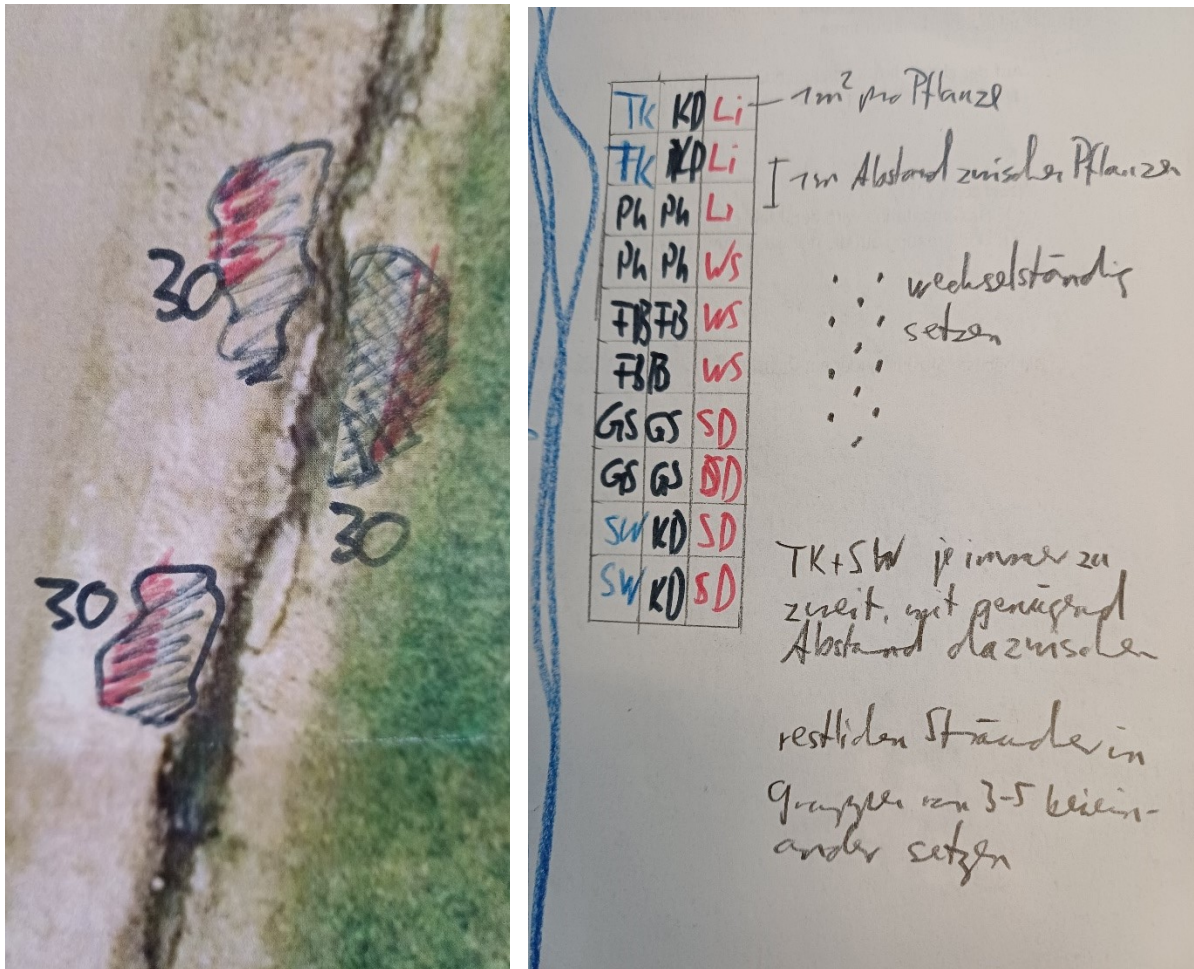 30
30
30
TK KD Li
TK KD Li
Ph Ph Li
Ph Ph WS
FB FB WS
FB B WS
GS GS SD
GS GS SD
SW KD SD
SW KD SD
1m² pro Pflanze
1m Abstand zwischen Pflanzen
wechselständig
setzen
TK+SW je immer zu
zweit, mit genügend
Abstand dazwischen
restlichen Sträucher in
Gruppen von 3-5 beiein-
ander setzen